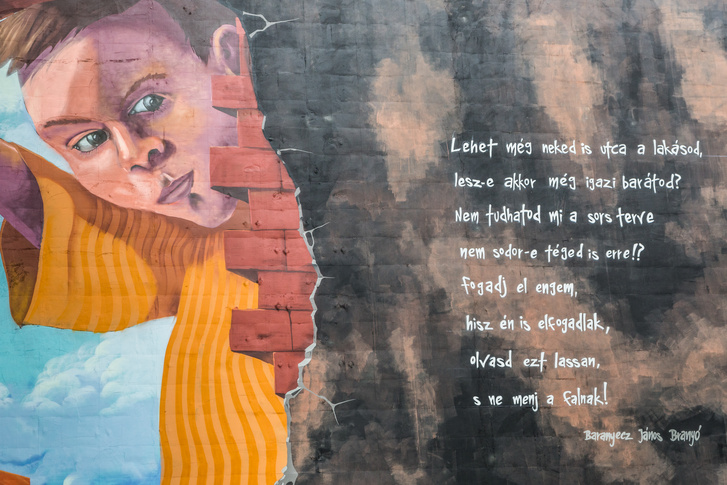 Lehet még neked is utca a lakásod,
lesz-e akkor még igazi barátod?
Nem tudhatod mi a sors terve
nem sodor-e téged is erre!?
fogadj el engem,
hisz én is elfogadlak,
olvasd ezt lassan,
s ne menj a falnak!
Baranyecz János Branyó